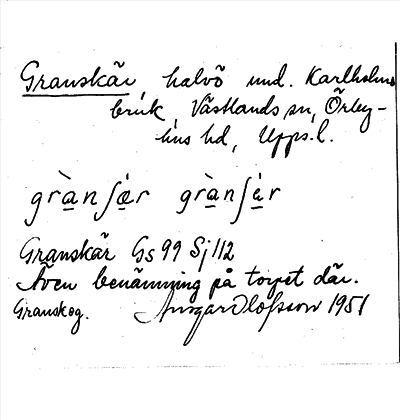 Granskär, halvö und. Karlholms
bruk, Västlands sn, Örby-
hus hd, Upps.l.
grànʃær grànʃær
Granskär Gs 99 Sj 112
Även benämning på torpet där.
Granskog. Ansgar Olofsson 1951